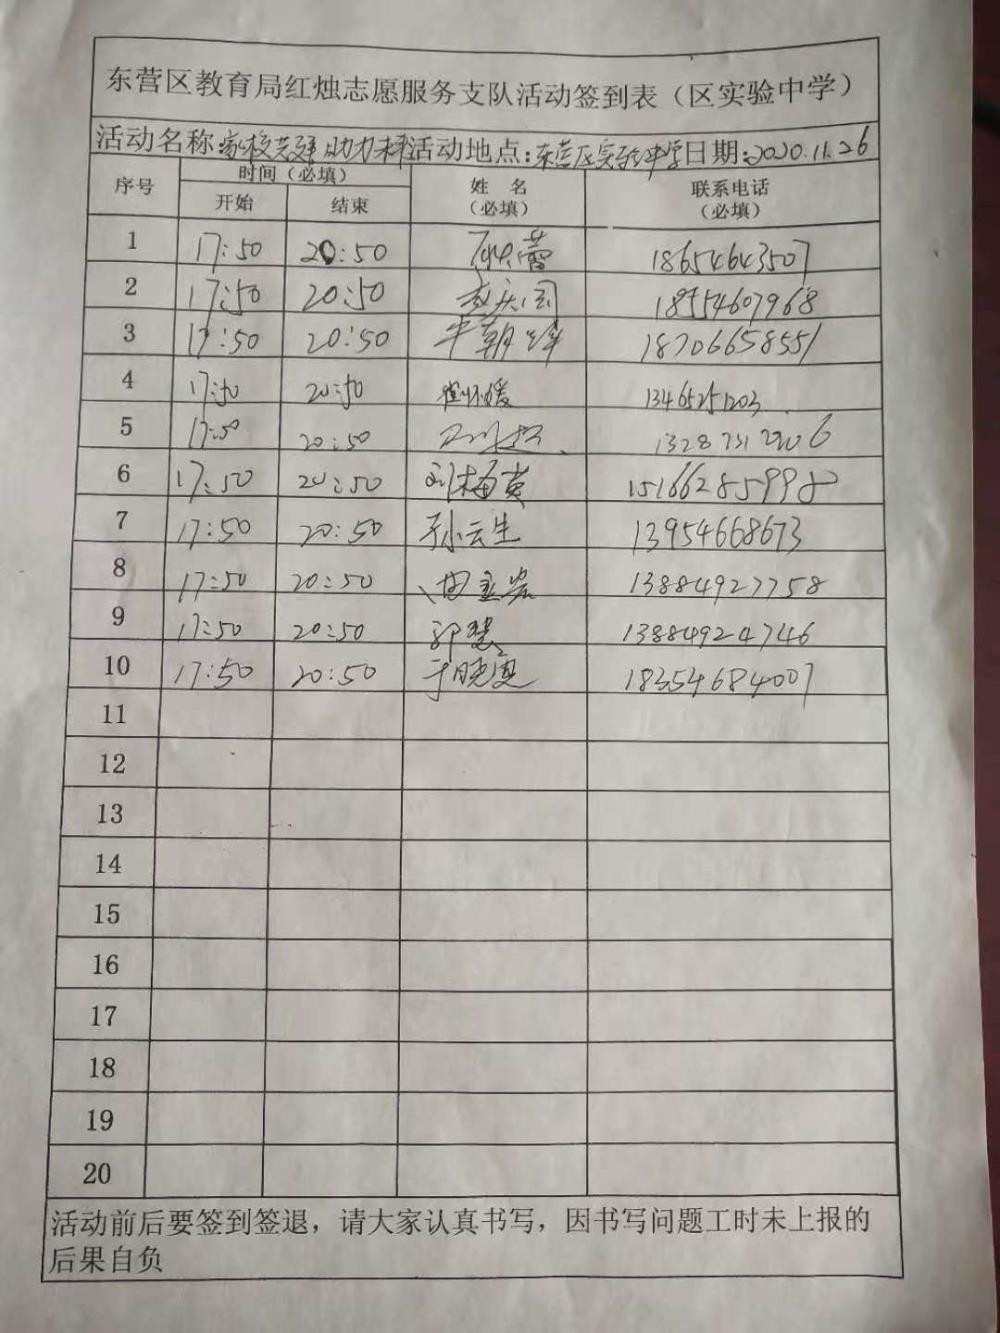 东营区教育局红烛志愿服务支队活动签到表（区实验中学）
活动名称:家校共建 助力未来 活动地点:东营区实验中学 日期:2020.11.26
序号 时间（必填） 姓 名（必填） 联系电话（必填）
开始 结束
1 17:50 20:50 18654643507
2 17:50 20:50 18554607968
3 17:50 20:50 牛朝锋 18706658551
4 17:50 20:50 崔怀媛 13465251203
5 17:50 20:50
6 17:50 20:50 刘梅英 151662859998
7 17:50 20:50 孙云生 13954668673
8 17:50 20:50 13884927758
9 17:50 20:50 郭慧 13884924746
10 17:50 20:50 于晓夏 18354684007
11
12
13
14
15
16
17
18
19
20
活动前后要签到签退，请大家认真书写，因书写问题工时未上报的
后果自负